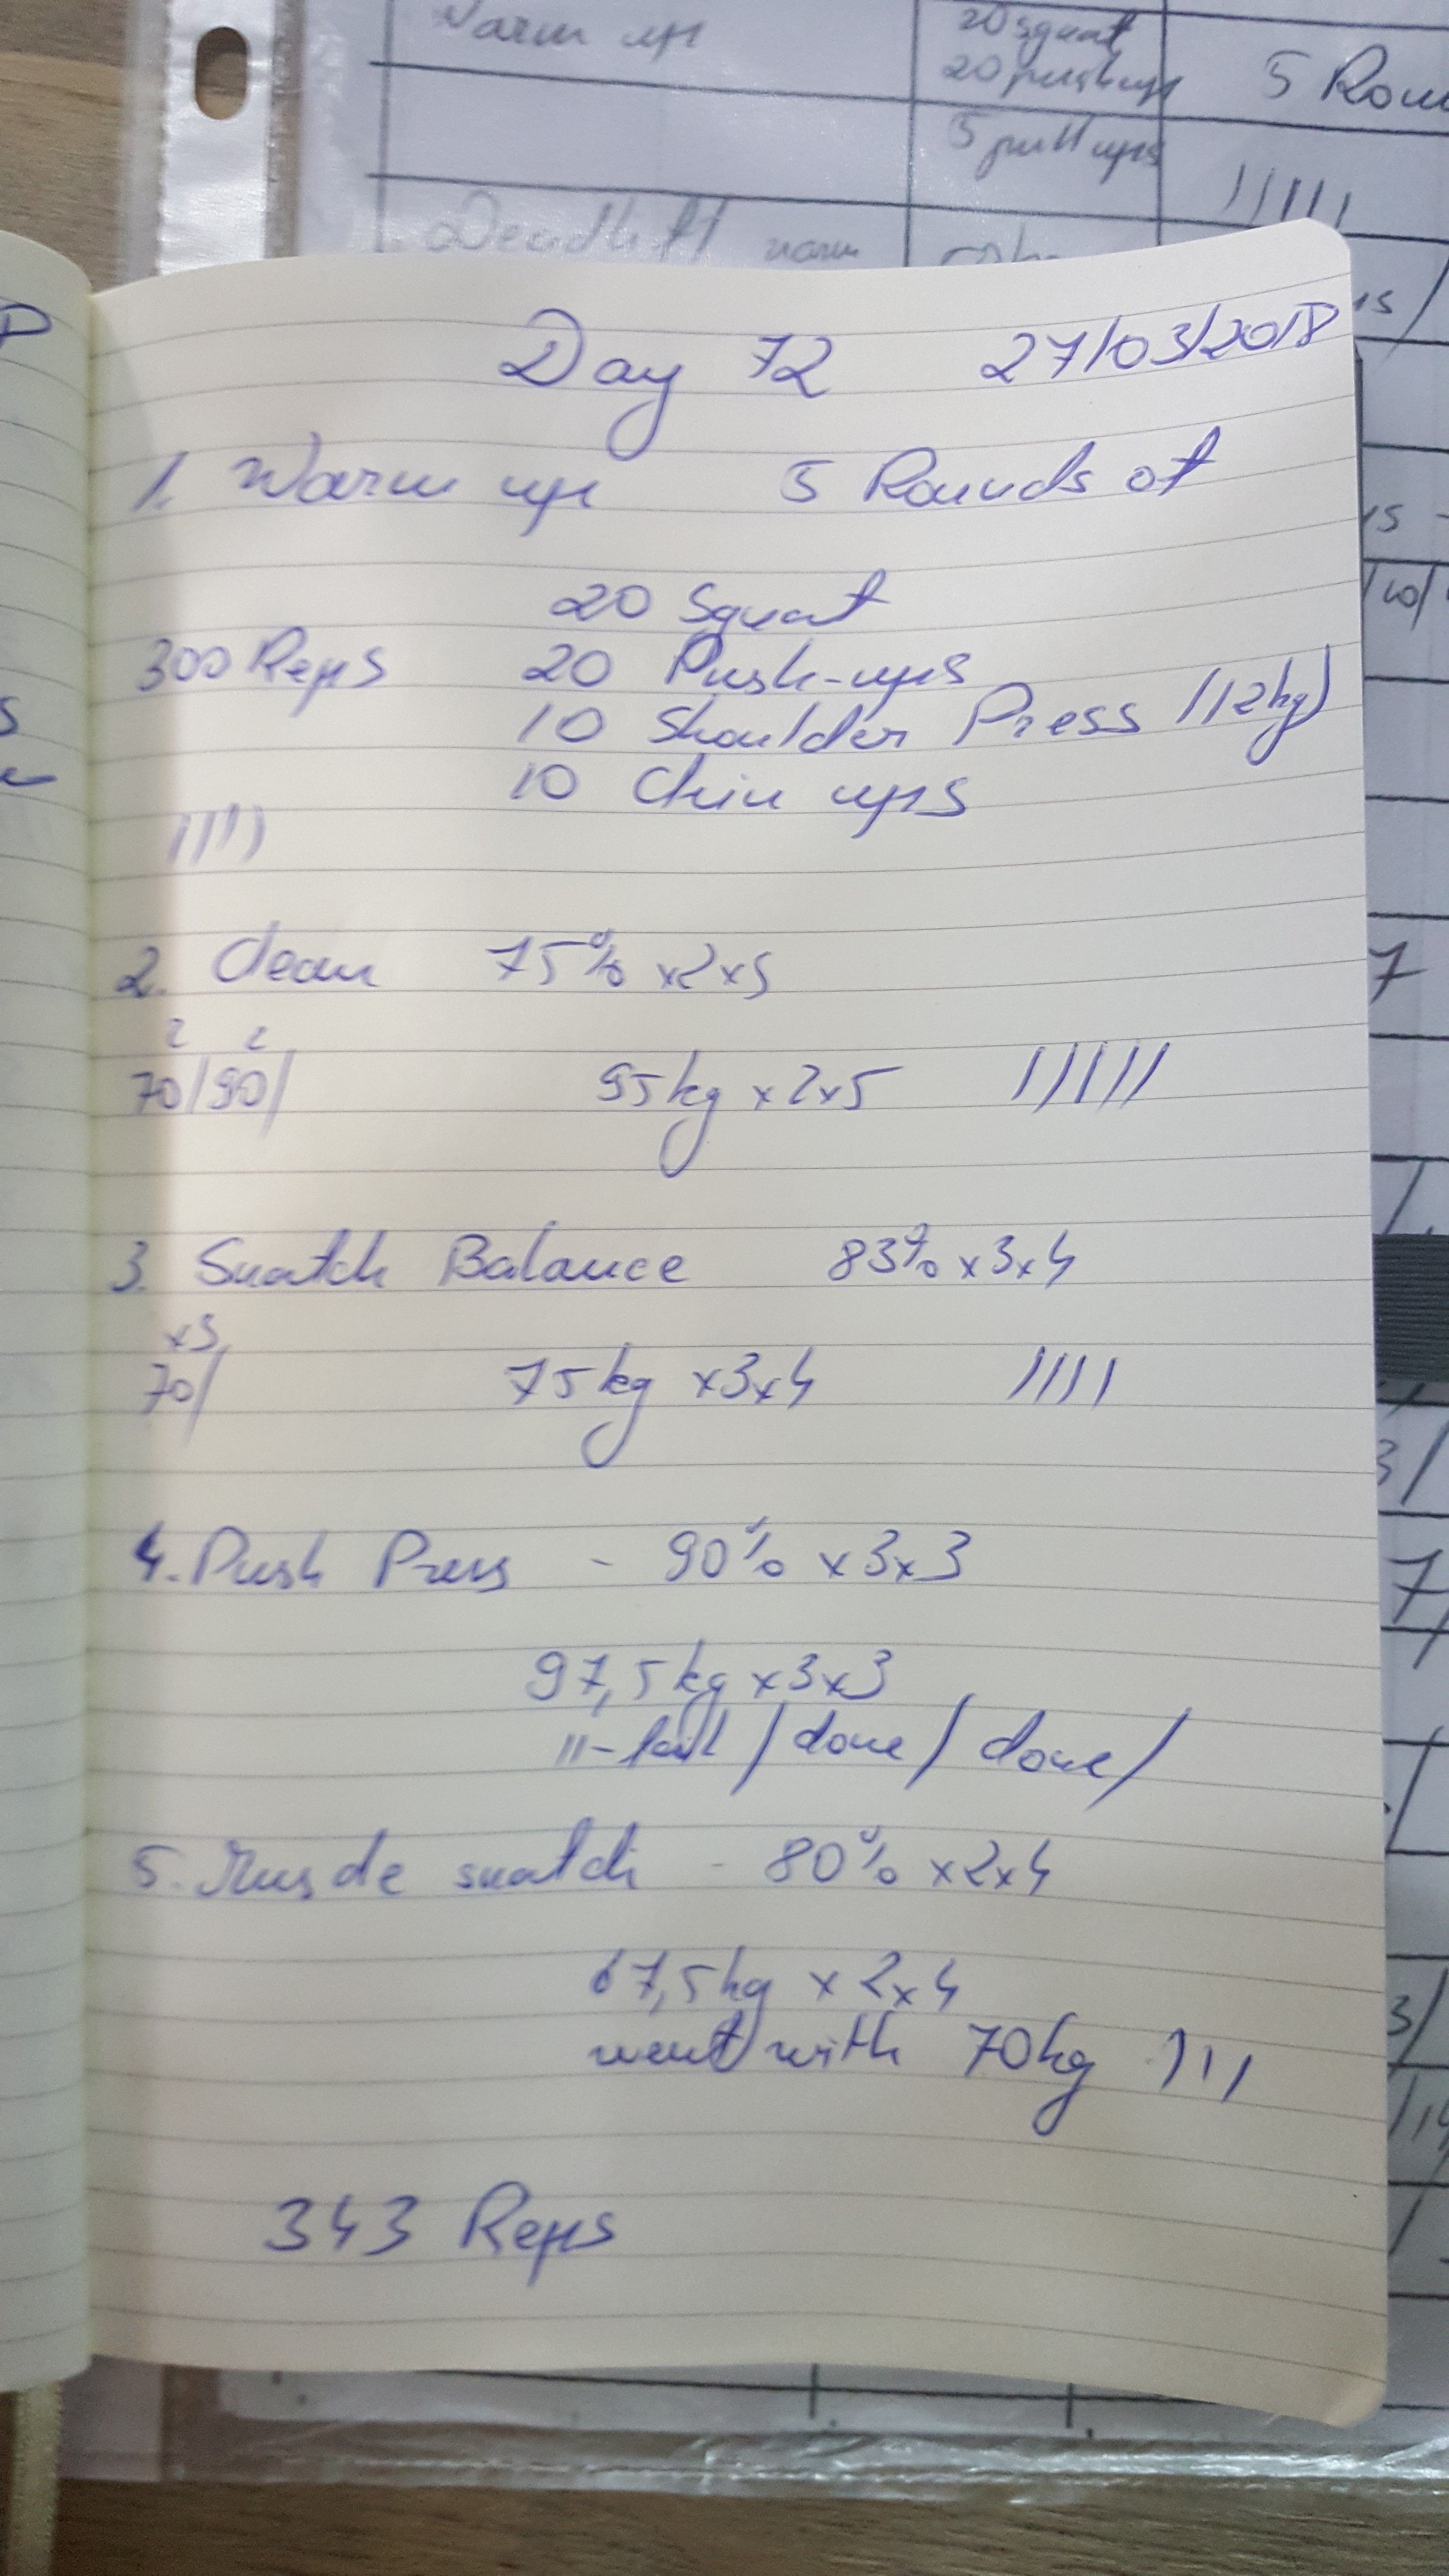 Warm ups
20 squat
20 push ups
5 Roun
5 pull ups
Deadlift warm
Day 72 27/03/2018
1. Warm ups 5 Rounds of
20 Squat
300 Reps 20 Push-ups
10 Shoulder Press (12kg)
10 Chin ups
||||
2. Clean 75% x2x5
2 2
70/90/ 95kg x2x5 ||||||
3. Snatch Balance 83% x3x4
x3
70/ 75kg x3x4 ||||
4. Push Press - 90% x3x3
97,5kg x3x3
11-fail / done / done /
5. Muscle snatch - 80% x2x4
67,5kg x 2x4
went with 70kg |||
343 Reps